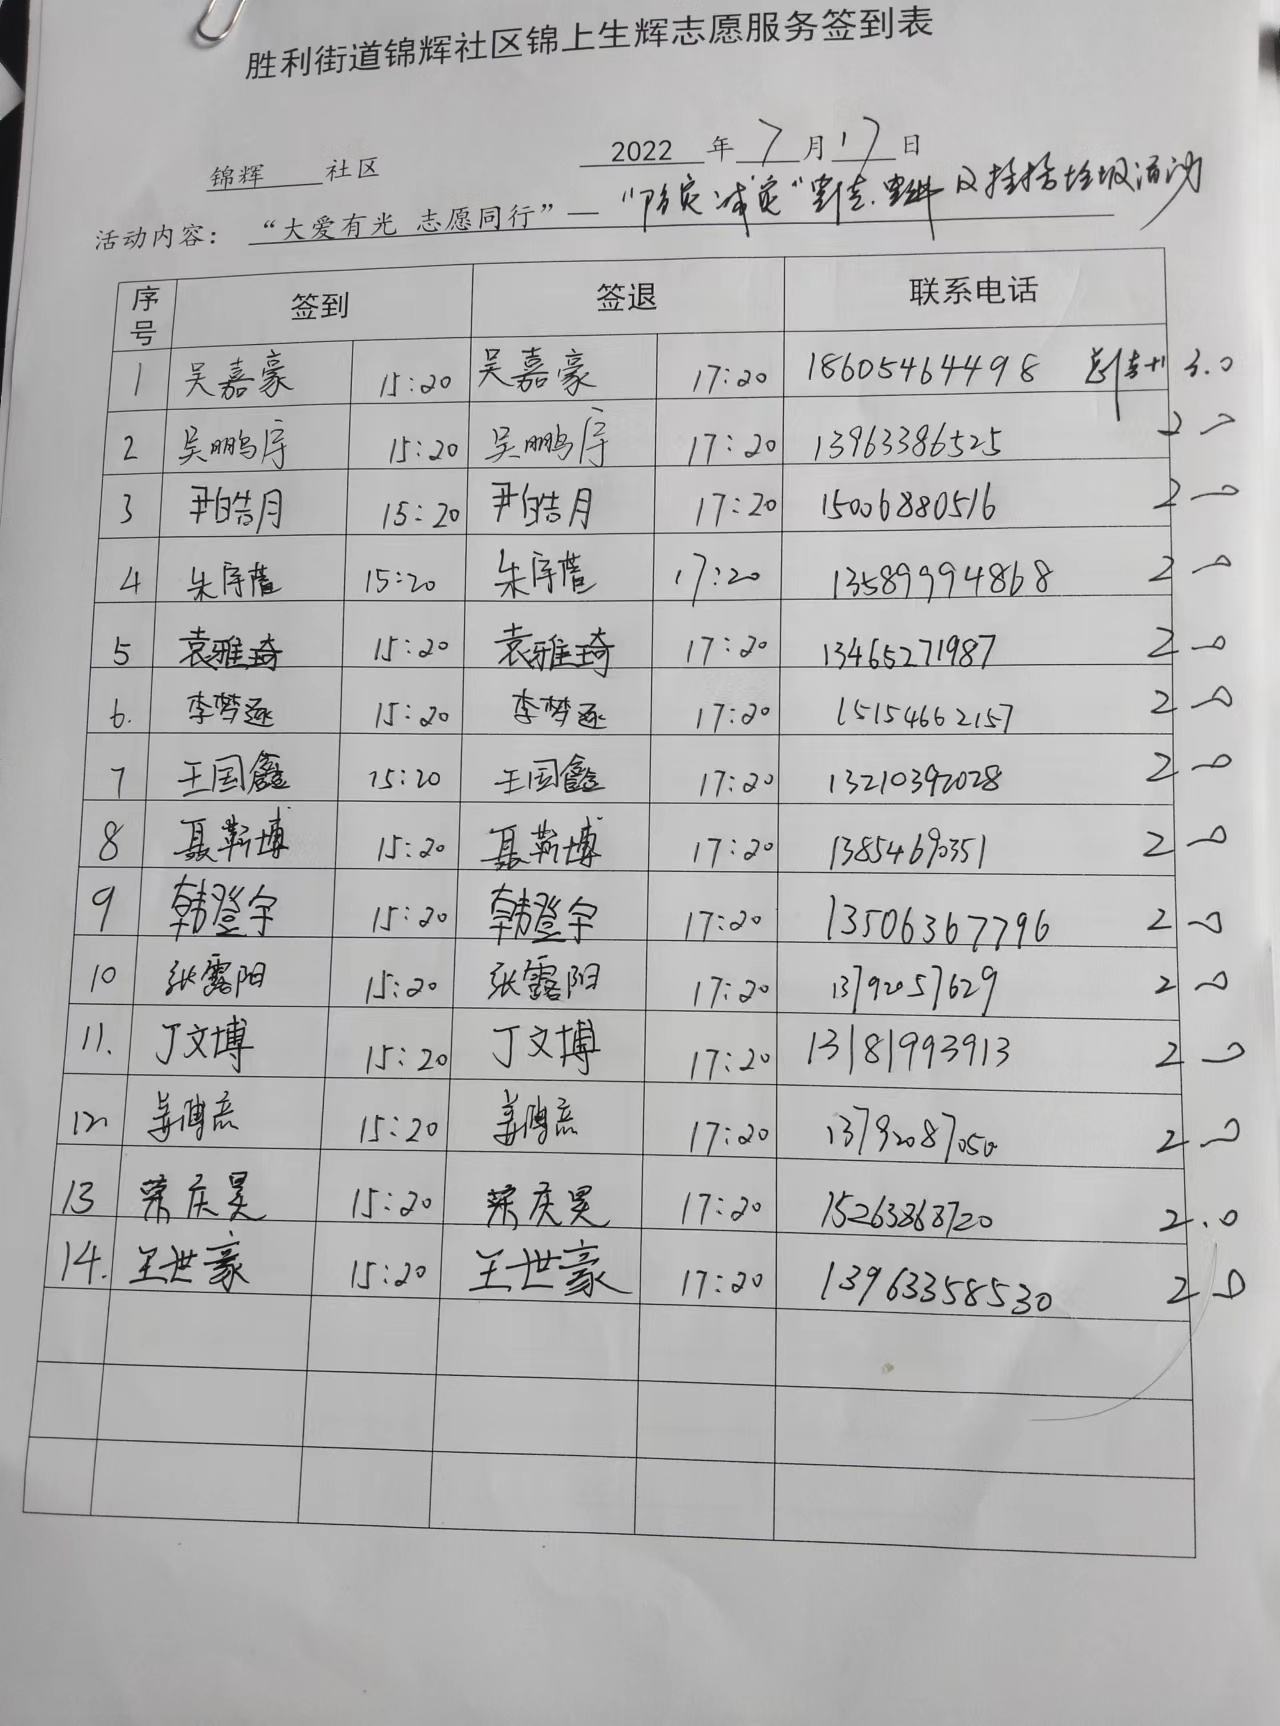 胜利街道锦辉社区锦上生辉志愿服务签到表
锦辉 社区 2022 年 7 月 17 日
活动内容： “大爱有光 志愿同行”— “防灾减灾”宣传 及捡拾垃圾活动
序号 签到 签退 联系电话
1 吴嘉豪 15:20 吴嘉豪 17:20 18605464498 3.0
2 吴鹏宇 15:20 吴鹏宇 17:20 13963386525 2.0
3 尹皓月 15:20 尹皓月 17:20 15006880516 2.0
4 朱宇萱 15:20 朱宇萱 17:20 13589994868 2.0
5 袁雅琦 15:20 袁雅琦 17:20 13465271987 2.0
6. 李梦逐 15:20 李梦逐 17:20 15154662157 2.0
7 王国鑫 15:20 王国鑫 17:20 13210392028 2.0
8 聂靳博 15:20 聂靳博 17:20 13854690351 2.0
9 韩登宇 15:20 韩登宇 17:20 13506367796 2.0
10 张露阳 15:20 张露阳 17:20 13792057629 2.0
11. 丁文博 15:20 丁文博 17:20 13181993913 2.0
12. 姜博彦 15:20 姜博彦 17:20 13792087050 2.0
13 荣庆昊 15:20 荣庆昊 17:20 15263868720 2.0
14. 王世豪 15:20 王世豪 17:20 13963358530 2.0